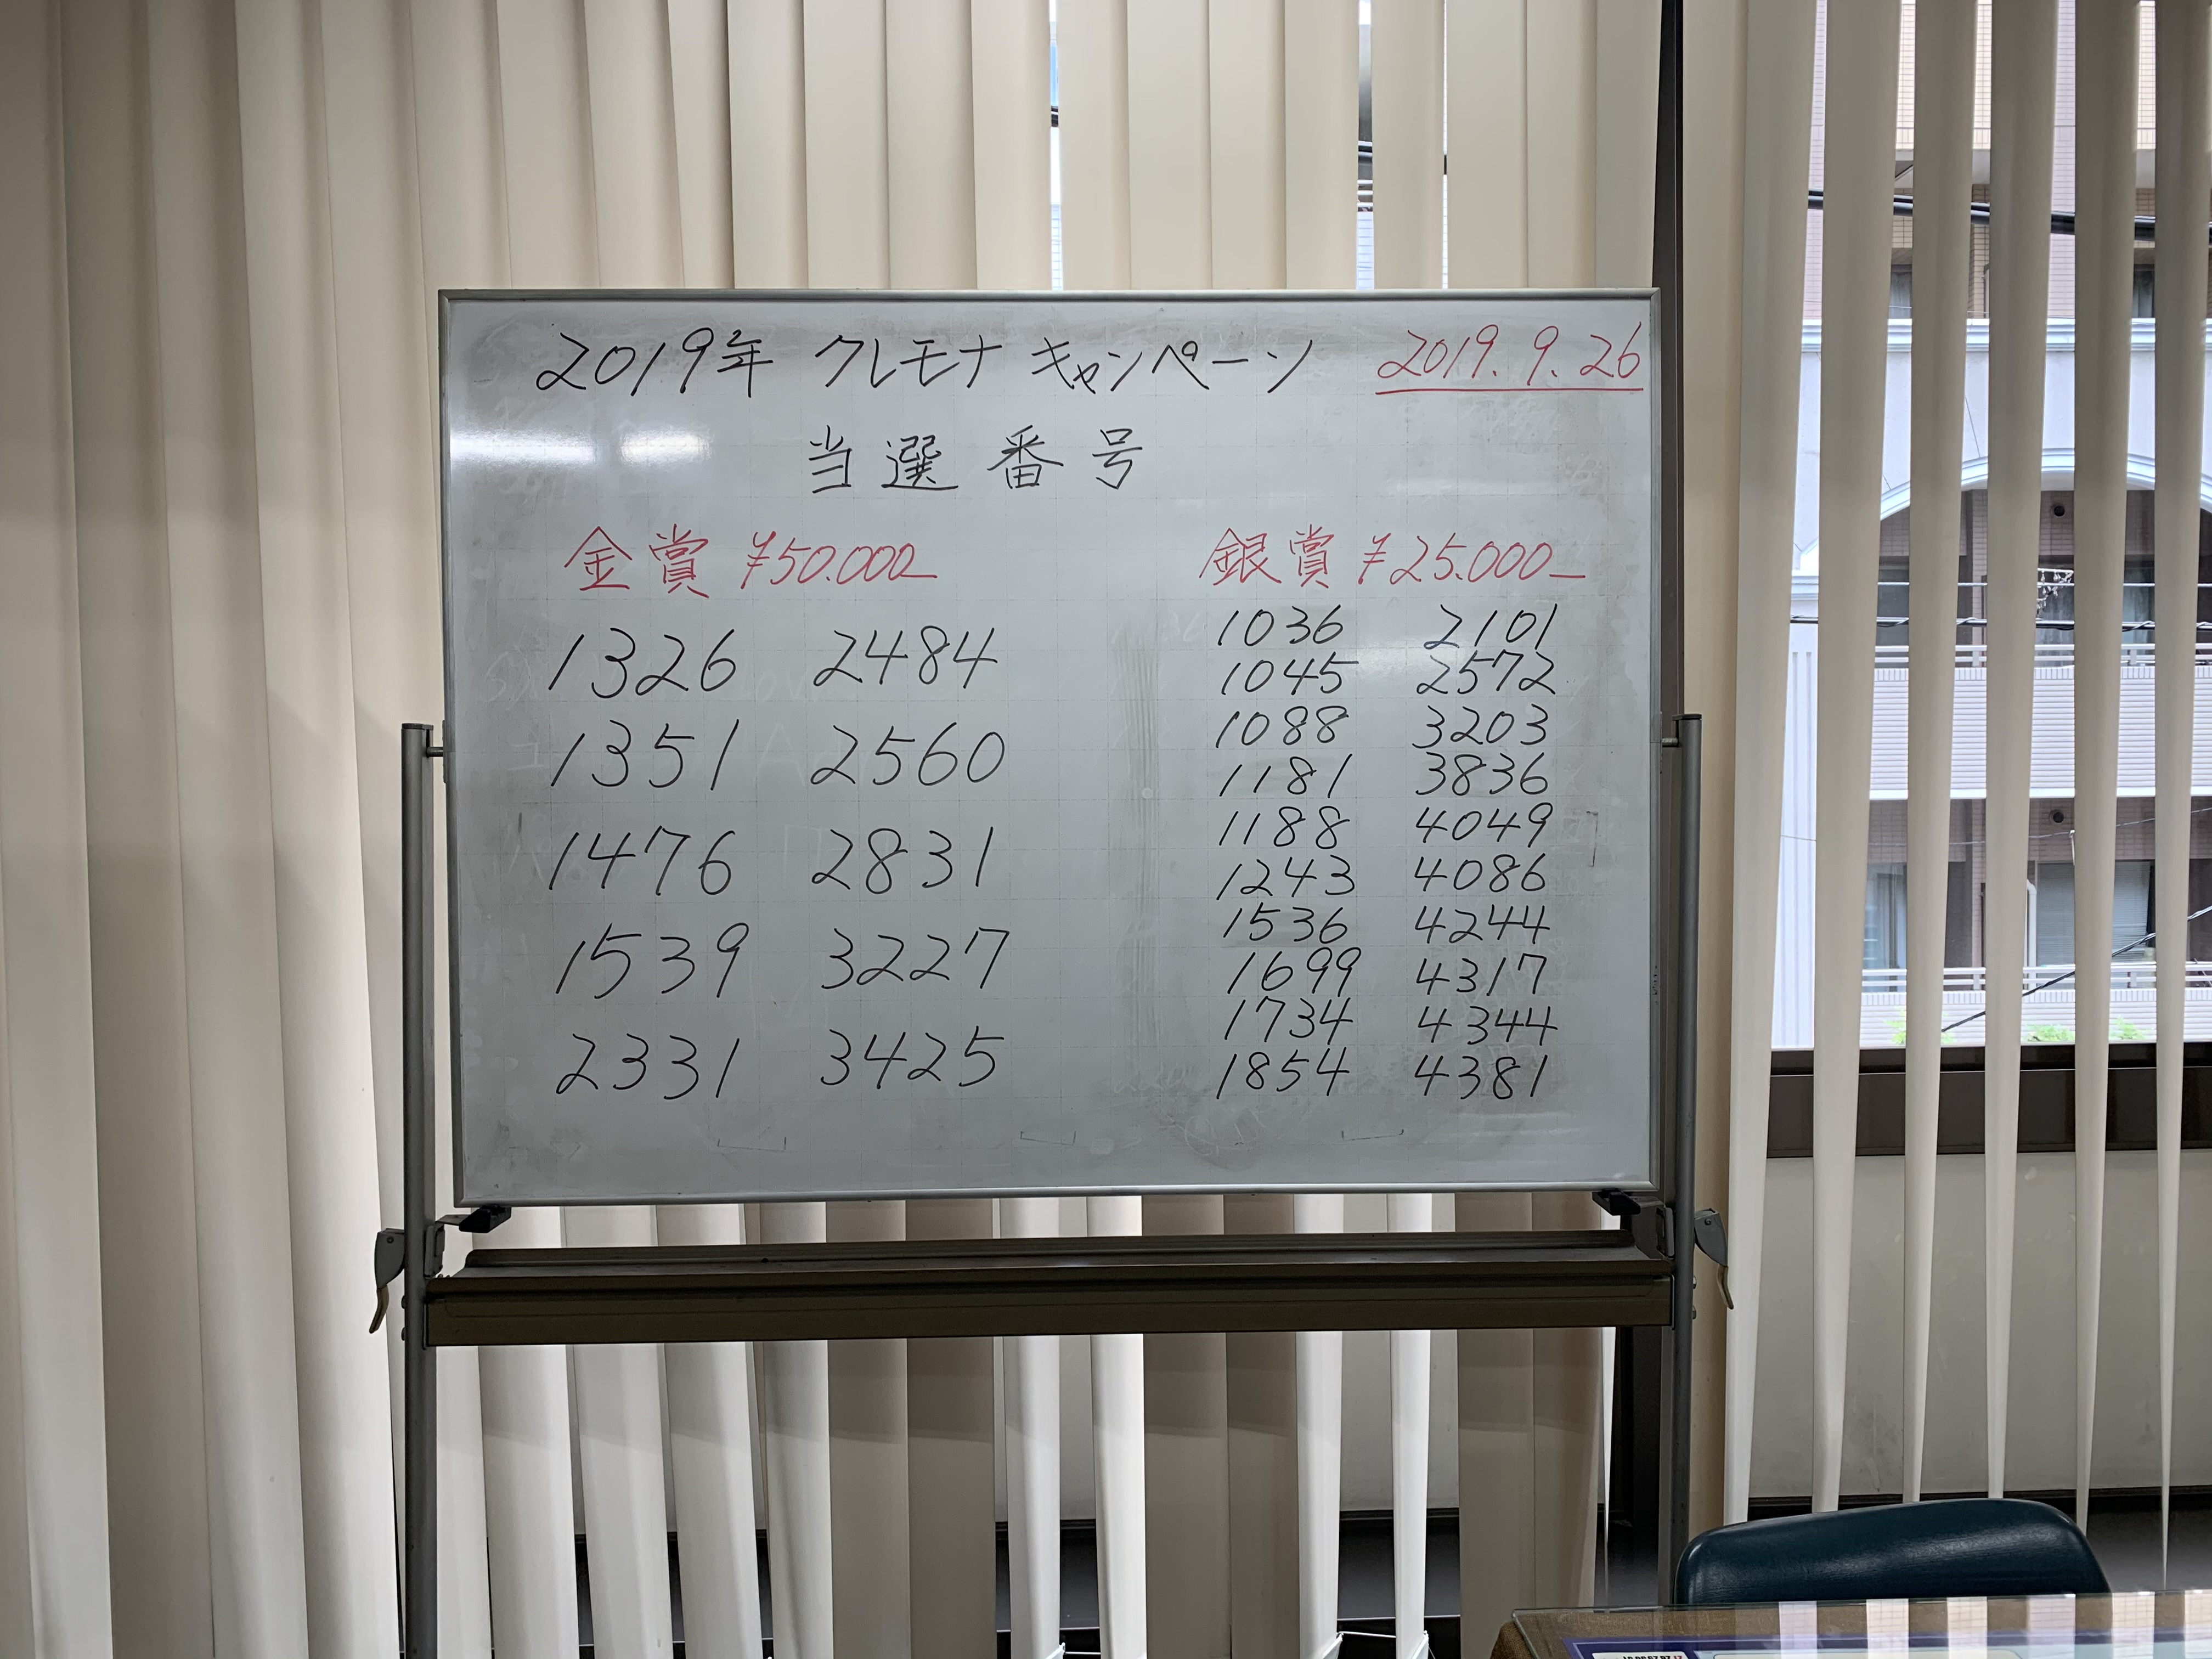 2019年 クレモナ キャンペーン 2019.9.26
当選番号
金賞 ¥50.000_
1326 2484
1351 2560
1476 2831
1539 3227
2331 3425
銀賞 ¥25.000_
1036 2101
1045 2572
1088 3203
1181 3836
1188 4049
1243 4086
1536 4244
1699 4317
1734 4344
1854 4381